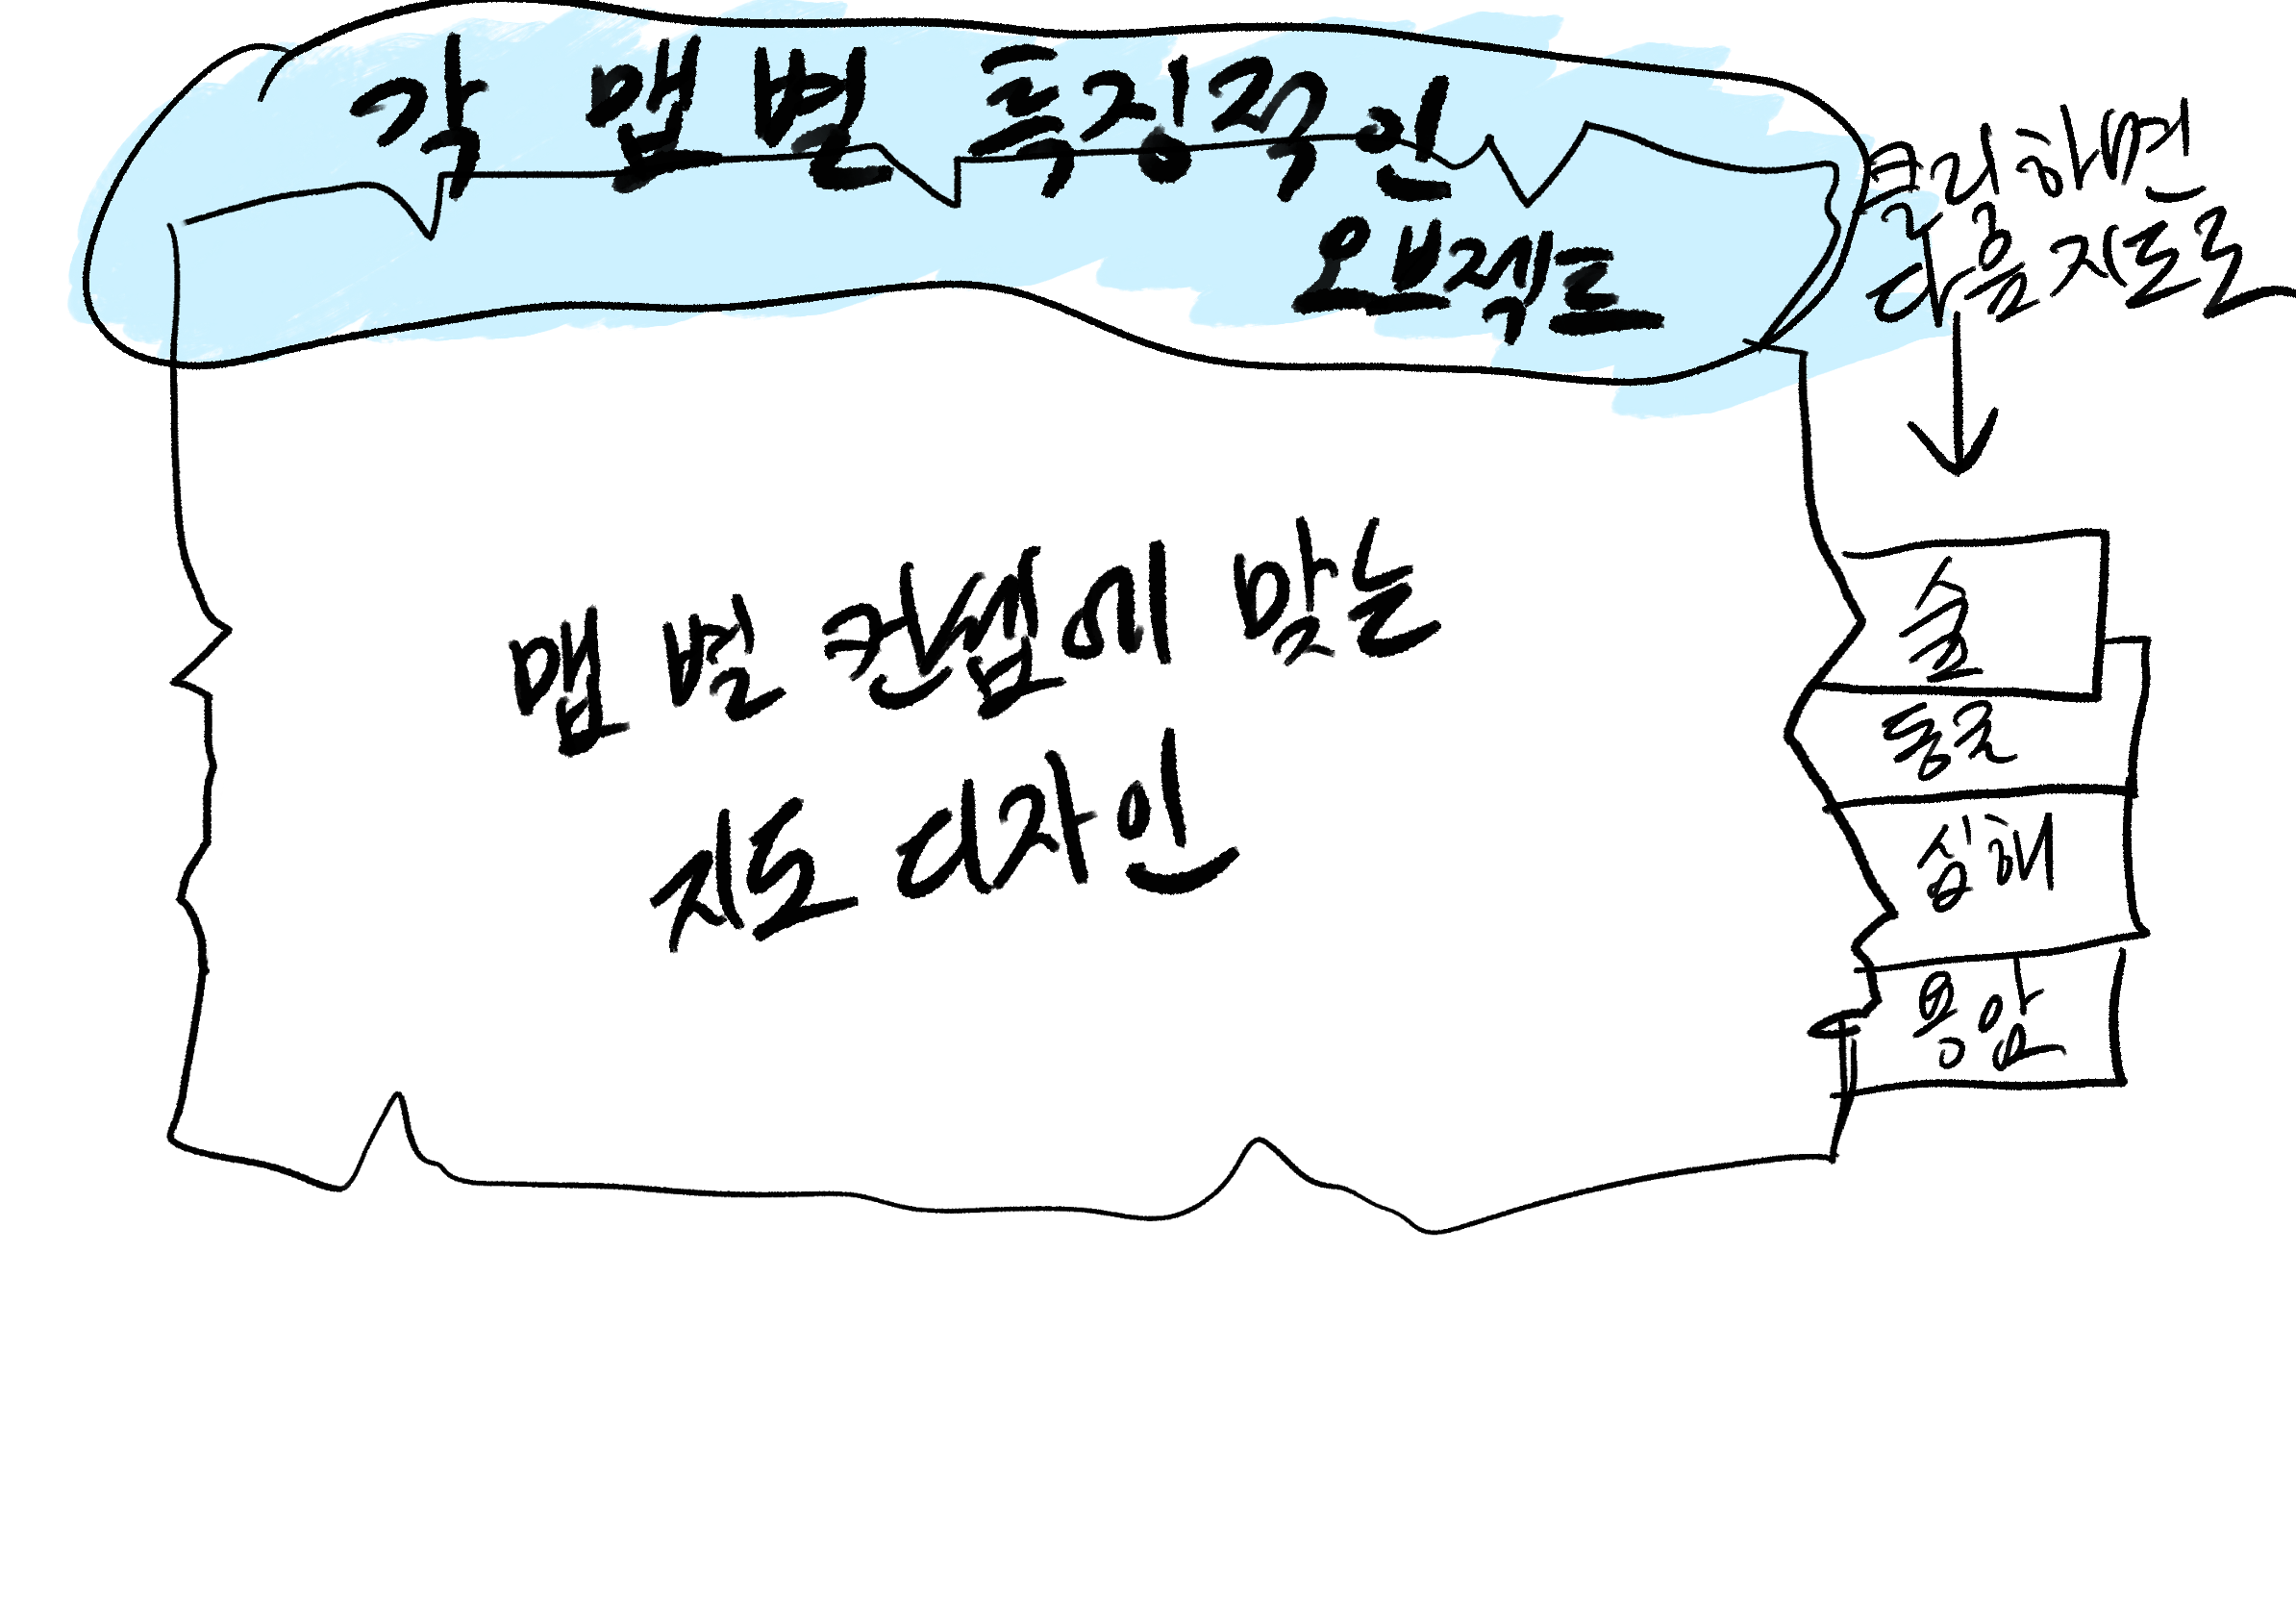 각 맵 별 특징적인
오브젝트
클릭하면
다음지도로
맵 별 컨셉에 맞는
지도 디자인
숲
동굴
심해
용암